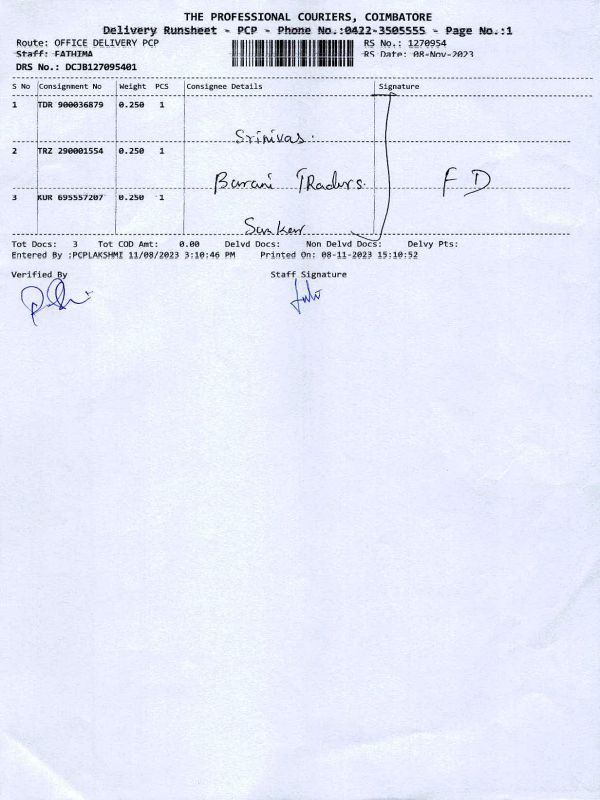 THE PROFESSIONAL COURIERS, COIMBATORE
Delivery Runsheet - PCP - Phone No.:0422-3505555 - Page No.:1
Route: OFFICE DELIVERY PCP RS No.: 1270954
Staff: FATHIMA RS Date: 08-Nov-2023
DRS No.: DCJB127095401
S No Consignment No Weight PCS Consignee Details Signature
1 TDR 900036879 0.250 1
Srinivas.
2 TRZ 290001554 0.250 1
Barani Traders. FD
3 KUR 695557207 0.250 1
Sanker
Tot Docs: 3 Tot COD Amt: 0.00 Delvd Docs: Non Delvd Docs: Delvy Pts:
Entered By :PCPLAKSHMI 11/08/2023 3:10:46 PM Printed On: 08-11-2023 15:10:52
Verified By Staff Signature